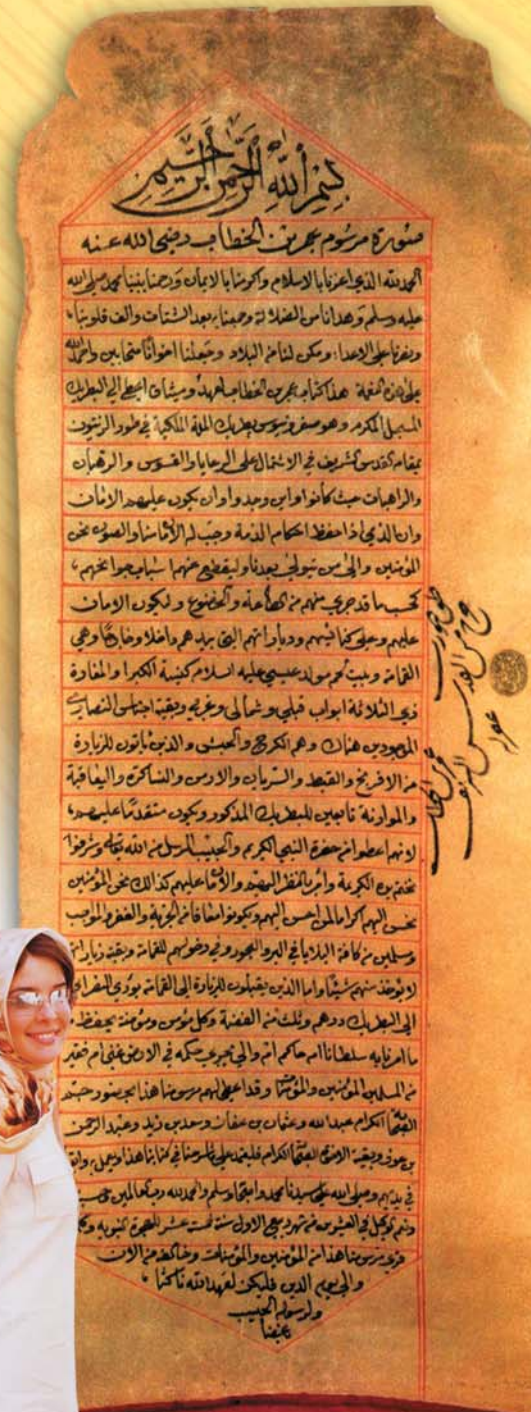 بسم الله الرحمن الرحيم
صورة مرسوم عمر بن الخطاب رضي الله عنه
الحمد لله الذي اعزنا بالاسلام واكرمنا بالايمان ورحمنا بنبينا محمد صلى الله
عليه وسلم وهدانا من الضلالة وجمعنا به بعد الشتات والف قلوبنا
ونصرنا على الاعداء ومكن لنا من البلاد وجعلنا اخوانا متحابين واحمدوا الله
على هذه النعمة هذا كتاب عمر بن الخطاب لعهد وميثاق اعطي الى البطريرك
المبجل المكرم وهو صفرونيوس بطريرك الملة الملكية في طور الزيتون
بمقام القدس الشريف في الاشتمال على الرعايا والقسوس والرهبان
والراهبات حيث كانوا واين وجدوا وان يكون عليهم الامان
وان الذمي اذا حفظ احكام الذمة وجب له الامان والصون نحن
المؤمنين والى من يتولى بعدنا وليقطع عنهم اسباب جوانحهم
كحسب ما قد جرى منهم من الطاعة والخضوع وليكون الامان
عليهم وعلى كنائسهم وديارتهم التي بيدهم داخلا وخارجا وهي
القمامة وبيت لحم مولد عيسى عليه السلام كنيسة الكبرا والمغارة
ذي الثلاثة ابواب قبلي وشمالي وغربي وبقية اجناس النصارى
الموجودين هناك وهم الكرج والحبش والذين ياتون للزيارة
من الافرنج والقبط والسريان والارمن والنساطرة واليعاقبة
والموارنة تابعين للبطريرك المذكور ويكون متقدما عليهم
لانهم اعطوا من حضرة النبي الكريم والحبيب المرسل من الله تعالى وشرفوا
بختم يده الكريمة وامر بالنظر اليهم والامان عليهم كذالك نحن المؤمنين
نحسن اليهم اكراما لمن احسن اليهم ويكونوا معافا من الجزية والغفر والمواجب
ومسلمين من كافة البلايا في البر والبحور وفي دخولهم للقمامة وبقية زياراتهم
لا يؤخذ منهم شيئا واما الذين يقبلون للزيارة الى القمامة يؤدي النصراني
الى البطريرك درهم وثلث من الفضة وكل مؤمن ومؤمنة يحفظ
ما امرنا به سلطانا ام حاكم ام والي يجري حكمه في الارض غني ام فقير
من المسلمين المؤمنين والمؤمنات وقد اعطي لهم مرسومنا هذا بحضور جم
الصحابة الكرام عبد الله وعثمان بن عفان وسعد بن زيد وعبد الرحمن
بن عوف وبقية الاخوة الصحابة الكرام فليعتمد على ما شرحنا في كتابنا هذا ويعمل به وابقاه
في يدهم وصلى الله على سيدنا محمد واله وصحابه وسلم والحمد لله رب العالمين
ونعم الوكيل في العشرين من شهر ربيع الاول سنة خمسة عشر للهجرة النبوية وكل من
قرى مرسومنا هذا من المؤمنين والمؤمنات وخالفه من الان
والى يوم الدين فليكن لعهد الله ناكثا
ولرسوله الحبيب
باغضا